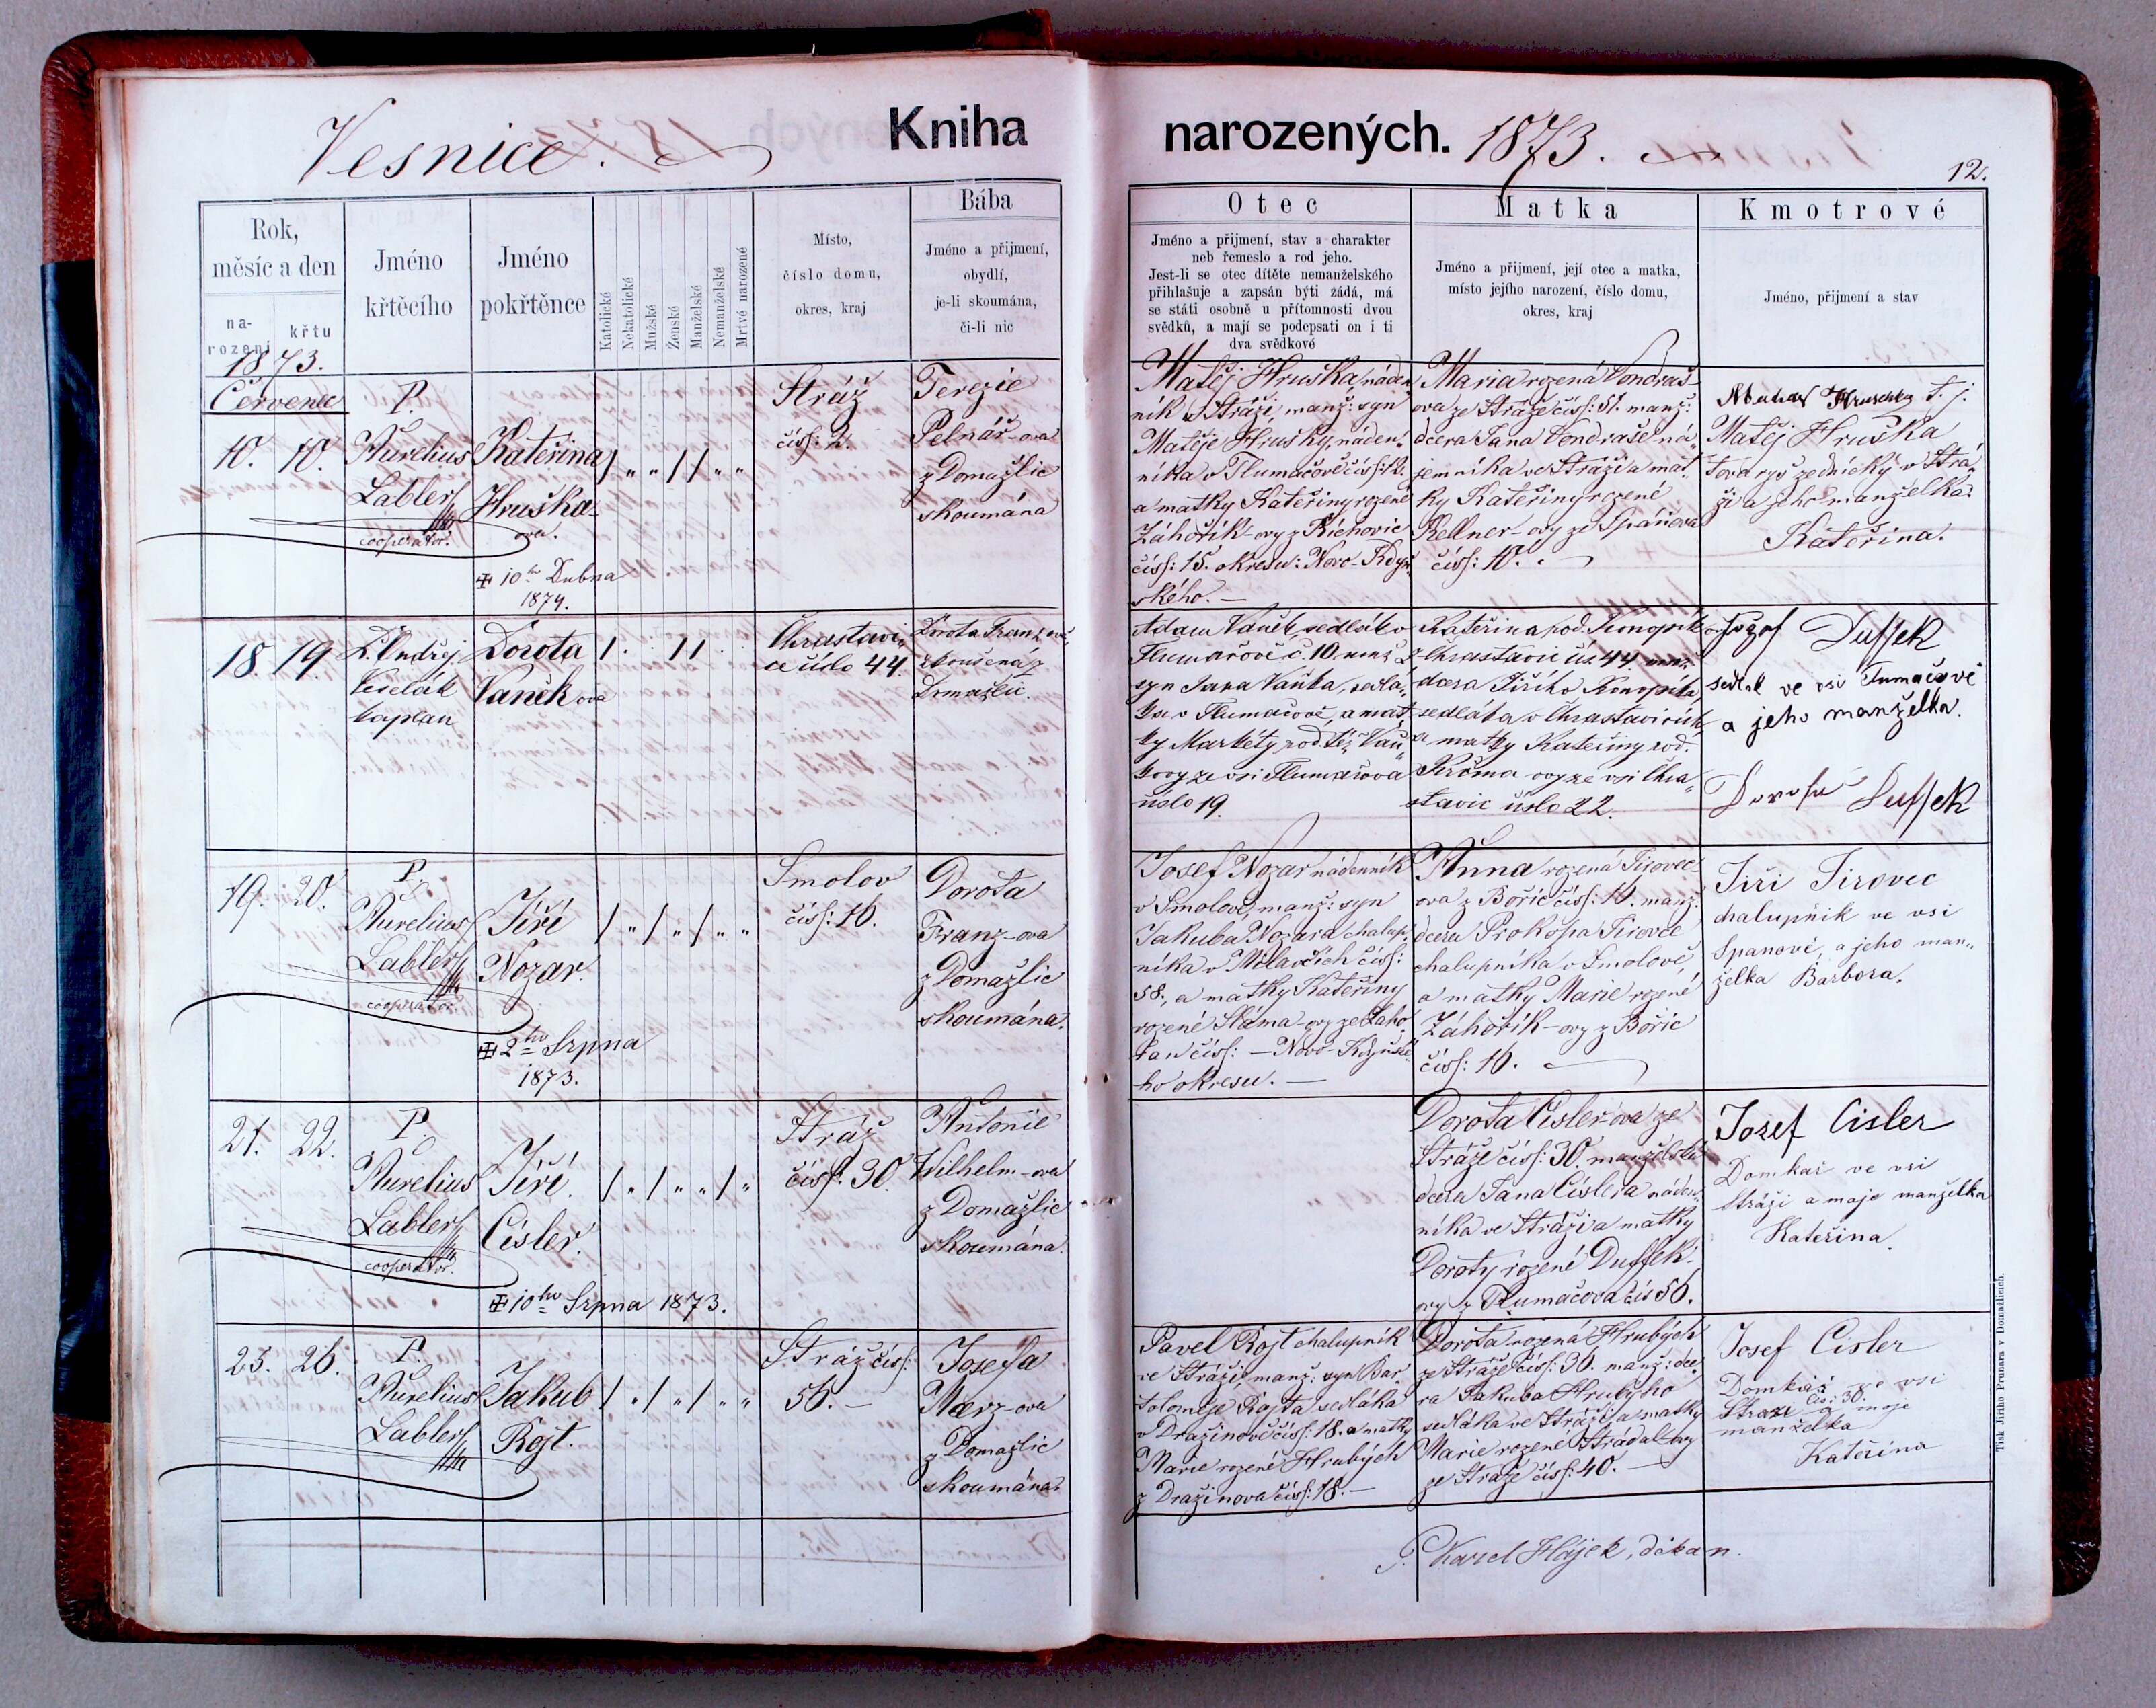 Vesnice.
Kniha
narozených. 1873.
12.
Rok,
měsíc a den
na-
rození
křtu
Jméno
křtěcího
Jméno
pokřtěnce
Katolické
Nekatolické
Mužské
Ženské
Manželské
Nemanželské
Mrtvě narozené
Místo,
číslo domu,
okres, kraj
Bába
Jméno a přijmení,
obydlí,
je-li skoumána,
či-li nic
Otec
Jméno a přijmení, stav a charakter
neb řemeslo a rod jeho.
Jest-li se otec dítěte nemanželského
přihlašuje a zapsán býti žádá, má
se státi osobně u přítomnosti dvou
svědků, a mají se podepsati on i ti
dva svědkové
Matka
Jméno a přijmení, její otec a matka,
místo jejího narození, číslo domu,
okres, kraj
Kmotrové
Jméno, přijmení a stav
1873.
Červenec
10. 10.
P.
Aurelius
Labler
cooperator.
Kateřina
Hruška-
ova.
✠ 10ho Dubna
1874.
/ „ „ / / „ „
Stráž
čísl: 2.
Terezie
Pelnář-ova
z Domažlic
skoumána
Matěj Hruška, náden
ník v Stráži, manž: syn
Matěje Hrušky, náden
níka v Tlumačově čísl:
a matky Kateřiny rozené
Záhořík-ovy z Říchovic
čísl: 15. okresu: Novo-Kdyň
ského. —
Maria rozená Vondraš-
ova ze Stráže čísl: 51. manž:
dcera Jana Vondraše ná
jemníka ve Stráži a mat
ky Kateřiny rozené
Kellner-ovy ze Spáňova
čísl: 10.
Hruschka t. j.
Matěj Hruška
tovaryš zednický v Strá
ži a jeho manželka
Kateřina.
18. 19.
P. Ondřej
Veselák
kaplan
Dorota
Vaněk ova
/ . . / / . .
Chrastavi
ce číslo 44.
Dorota Franz ova
zkoušená z
Domažlic.
Adam Vaněk, sedlák v
Tlumačově č. 10 manž.
syn Jana Vaňka, sedlá
ka v Tlumačově, a mat
ky Markéty, rod. též Vaň
kovy ze vsi Tlumačova
číslo 19.
Kateřina rod. Konopík
z Chrastavic čís. 44. manž.
dcera Jiřího Konopíka,
sedláka v Chrastavicích
a matky Kateřiny rod.
Krčma-ovy ze vsi Chra
stavic číslo 22.
Jozef Duffek
sedlak ve vsi Tumačově
a jeho manželka.
Duffek
19. 20.
P.
Aurelius
Labler
cooperator.
Jiří
Nozar.
✠ 2ho Srpna
1873.
/ „ / „ / „ „
Smolov
čísl: 16.
Dorota
Franz-ova
z Domažlic
skoumána.
Josef Nozar nádenník
v Smolově, manž: syn
Jakuba Nozara chalup
níka v Milavčích čísl:
58., a matky Kateřiny
rozené Sláma-ovy ze Zaho
řan čísl: — Novo-Kdyňské
ho okresu. —
Anna rozená Tirovec-
ova z Bořic čísl: 16. manž:
dcera Prokopa Tirovce
chalupníka v Smolově
a matky Marie rozené
Záhořík-ovy z Bořic
čísl: 16.
Jiři Tirovec
chalupňik ve vsi
Spanově, a jeho man„
želka Barbora.
21. 22.
P.
Aurelius
Labler
cooperator.
Jiří.
Císler.
✠ 10ho Srpna 1873.
/ „ / „ „ / „
Stráž
čísl: 30.
Antonie
Wilhelm-ova
z Domažlic
skoumána.
Dorota Císler-ova ze
Stráže čísl: 30. manželská
dcera Jana Císlera náden
níka ve Stráži a matky
Doroty rozené Duffek-
ovy z Tlumačova čís 56.
Jozef Cisler
Domkař ve vsi
Stráži a moje manželka
Kateřina.
25. 26.
P.
Aurelius
Labler
Jakub
Rojt.
/ „ / „ / „ „
Stráž čísl:
56. —
Josefa
Maerz-ova
z Domažlic
skoumána.
Pavel Rojt chalupník
ve Stráži, manž: syn Bar
tolomeje Rojta sedláka
v Dražinově čísl: 18. a matky
Marie rozené Hrubých
z Dražinova čísl: 18. —
Dorota rozená Hrubých
ze Stráže čísl: 36. manž: dce
ra Jakuba Hrubýho
sedláka ve Stráži a matky
Marie rozené Strádal-ovy
ze Stráže čísl: 40. —
Josef Cisler
Domkář ve vsi
Strazi čís: 30. a moje
manželka
Kateřina
P. Karel Hájek, děkan.
Tisk Jiřího Prunara v Domažlicích.